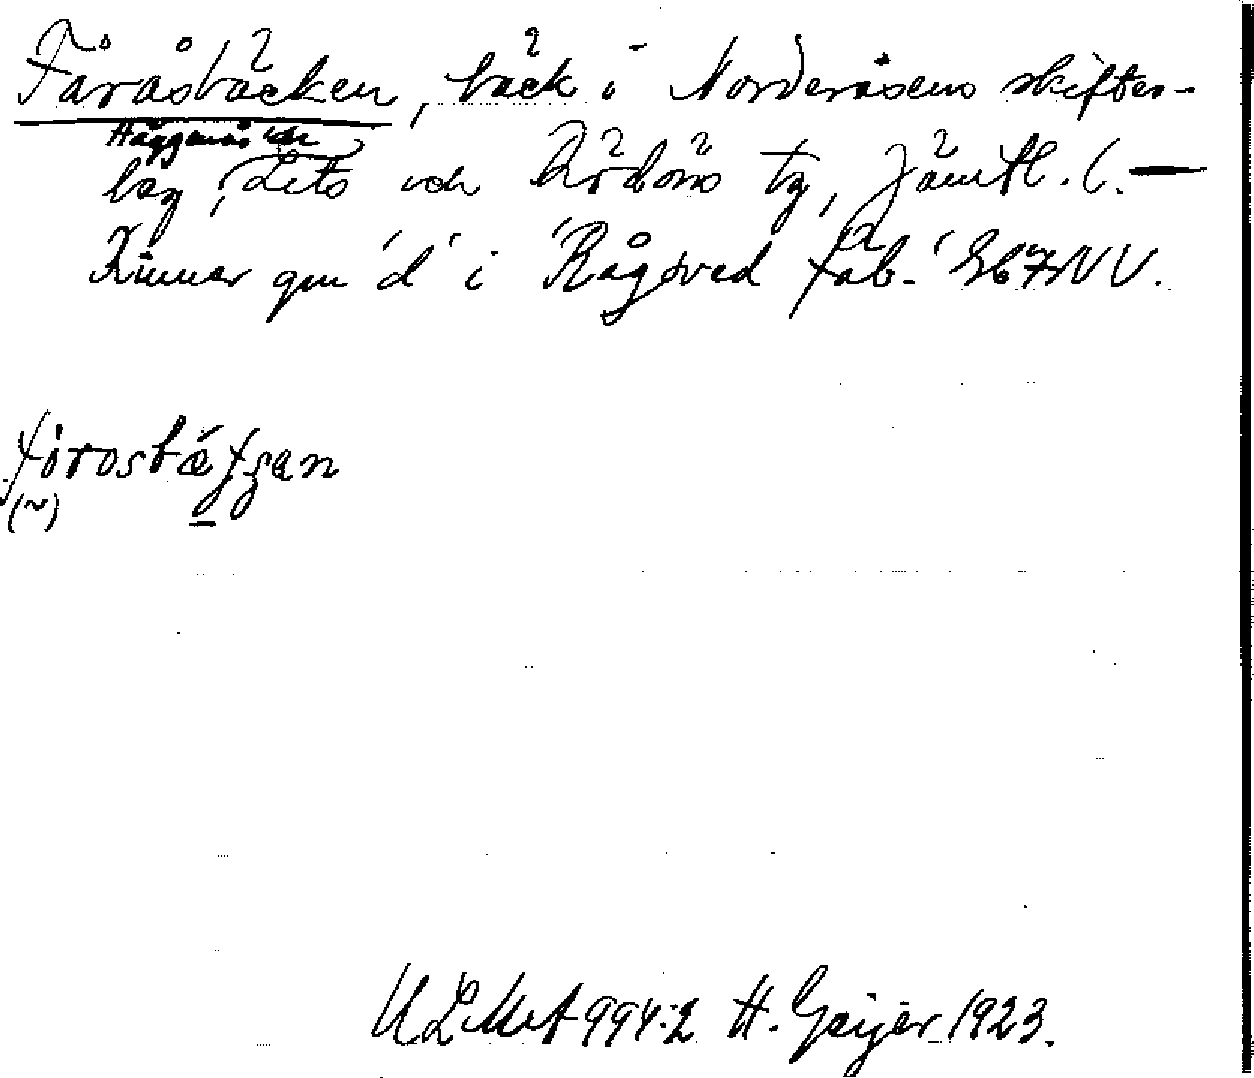 Fåråsbäcken, bäck i Norderåsens skifes-
Häggenås och
lag, Lits och Rödöns tg, Jämtl. l. —
Rinner gm 'd' i 'Rågsved fäb.' 367NV.
fòrosbǽƒʒan
(~)
ULMA 994:2 H. Geijer 1923.